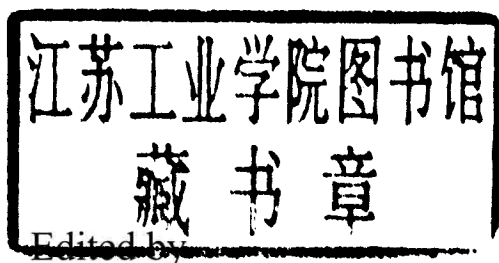 江苏工业学院图书馆
藏书章
Edited by